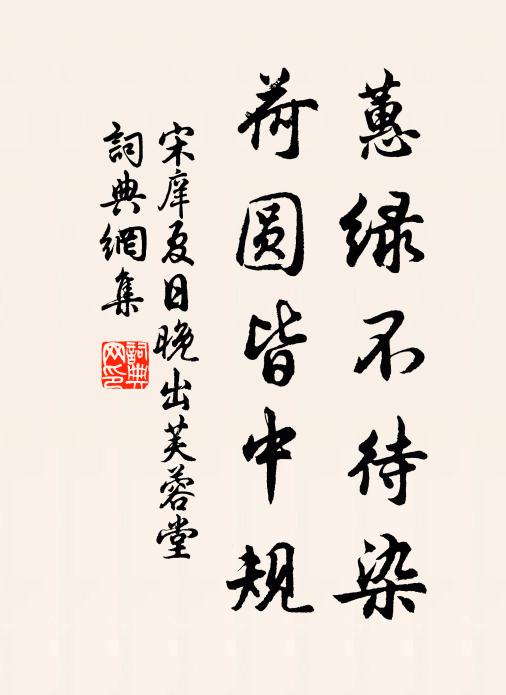 蕙绿不待染
荷圆皆中规
宋庠夏日晚出芙蓉堂
詞典網集
詞典網印